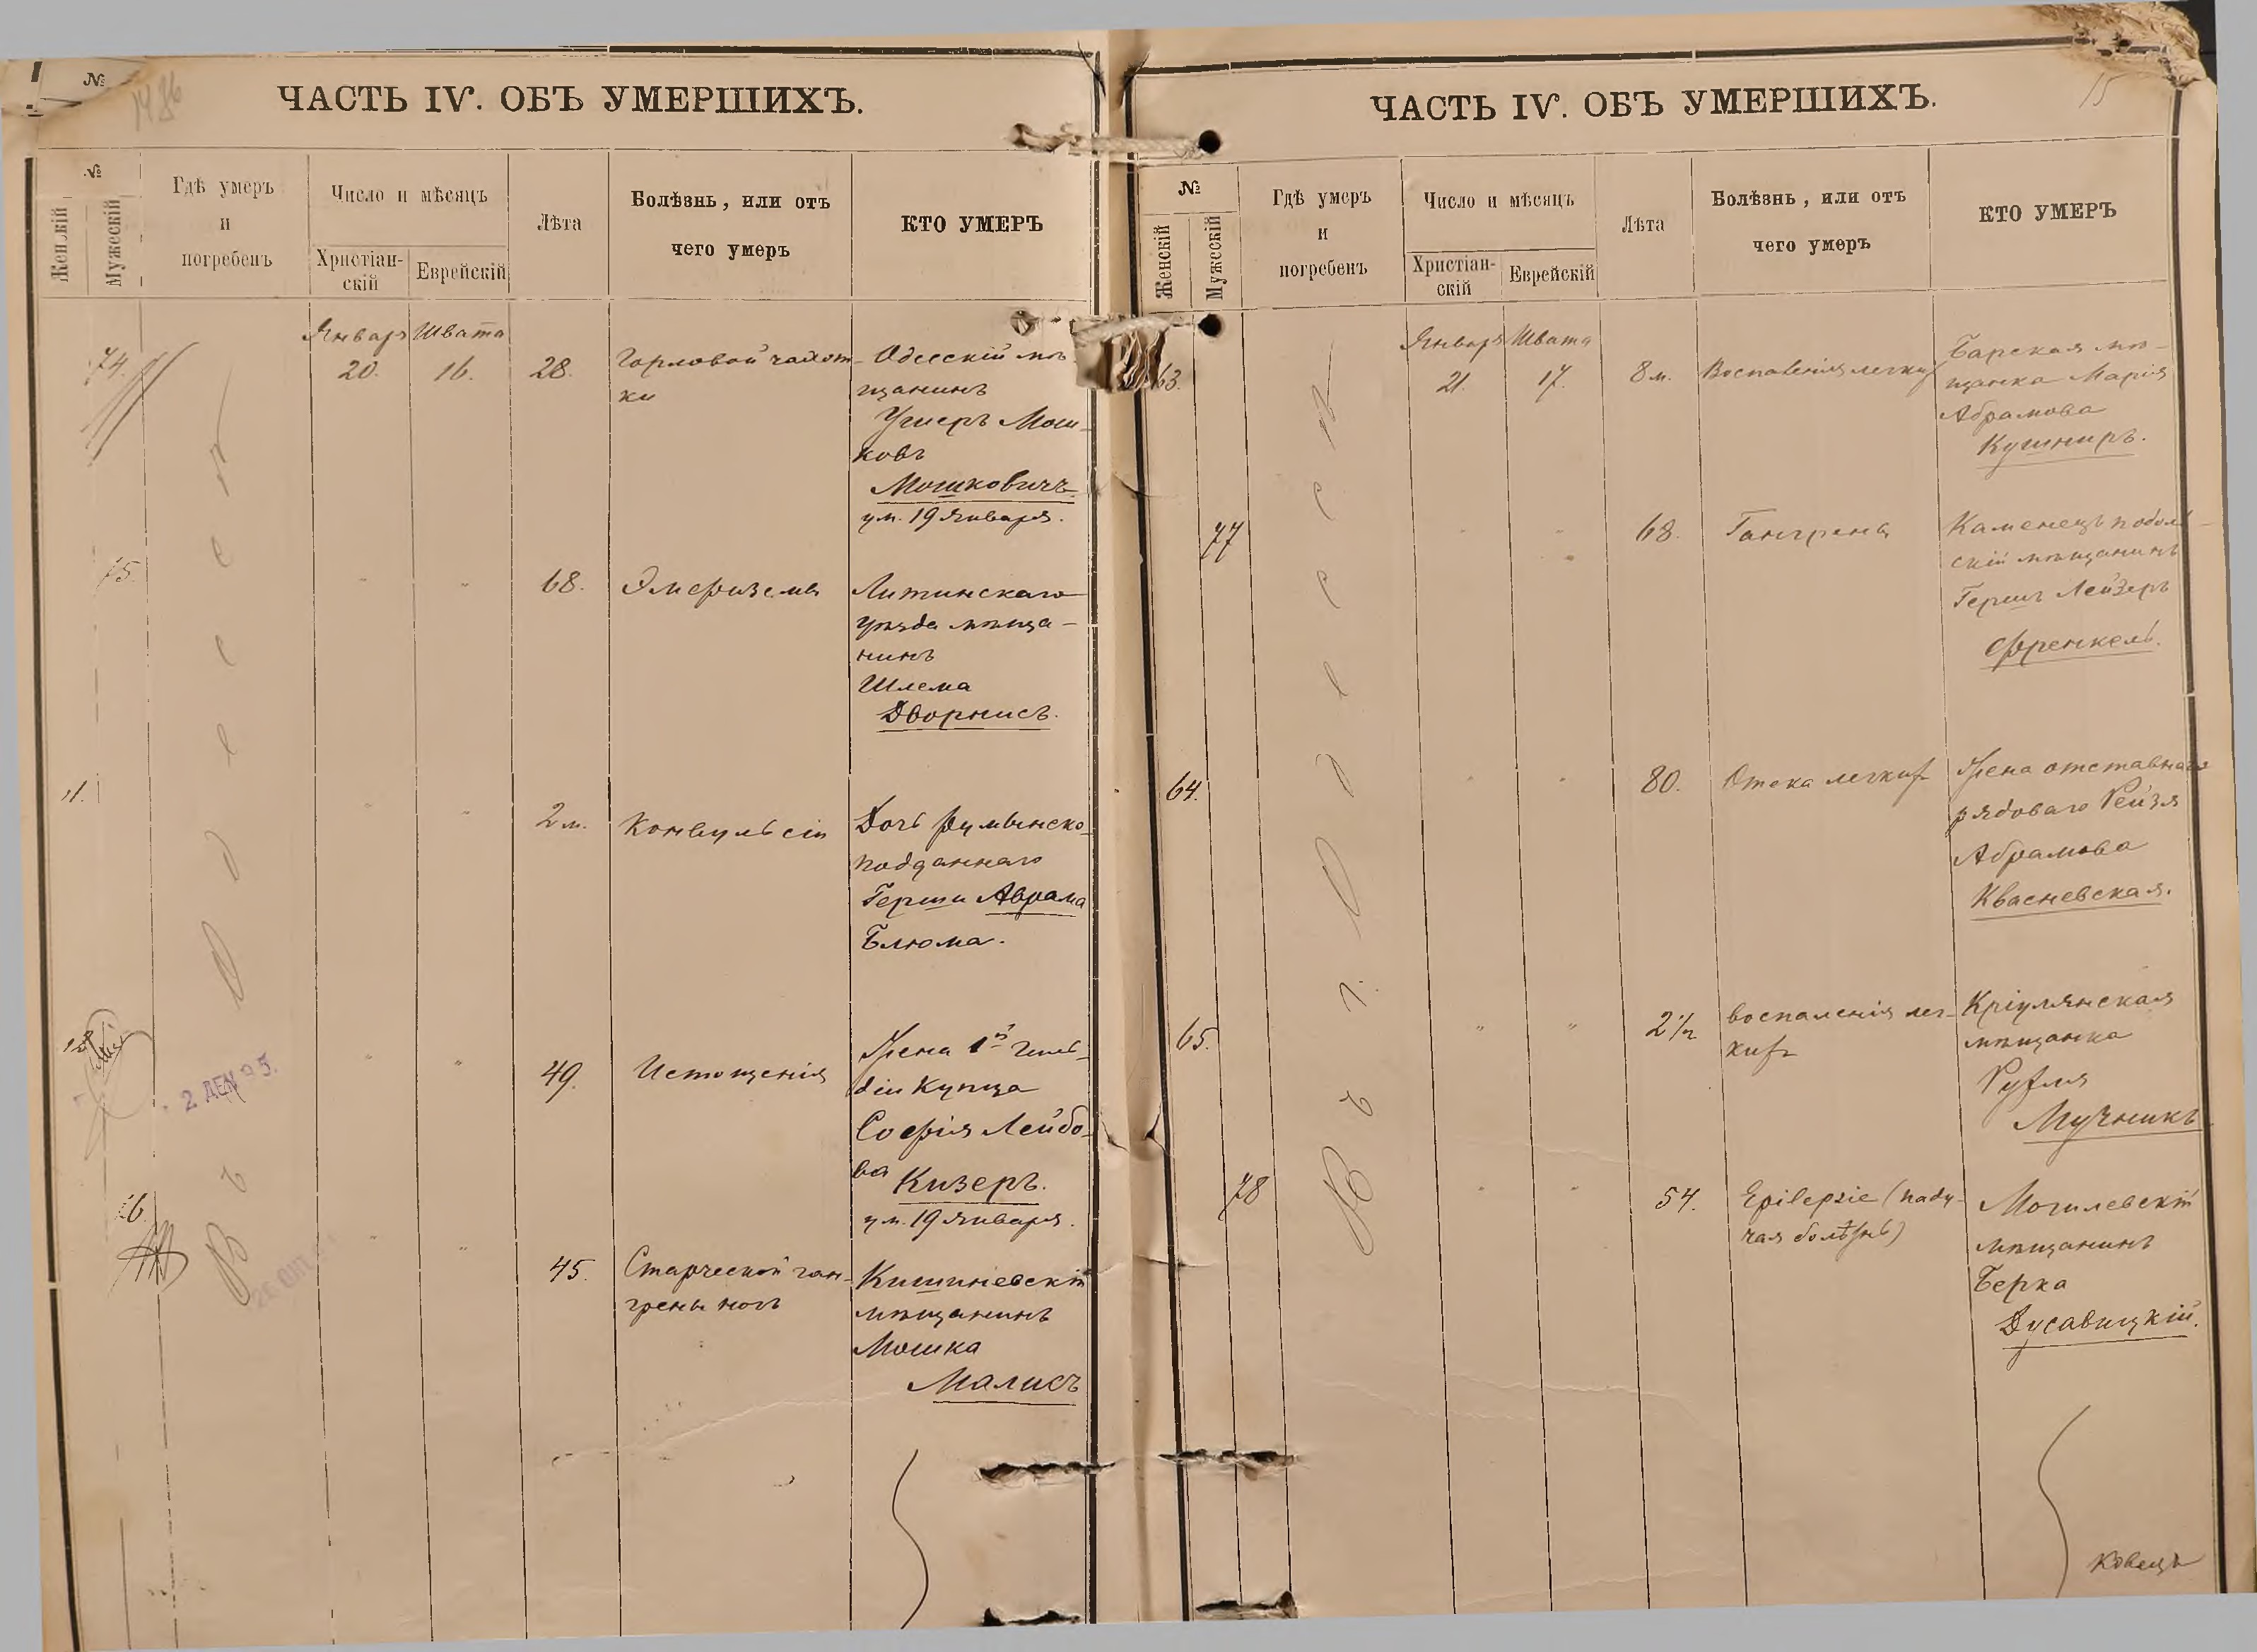 №
ЧАСТЬ IV. ОБЪ УМЕРШИХЪ.
№
Женскій
Мужескій
Гдѣ умеръ
и
погребенъ
Число и мѣсяцъ
Христіан-
скій
Еврейскій
Лѣта
Болѣзнь, или отъ
чего умеръ
КТО УМЕРЪ
Январь Швата
74. 20. 16. 28. Горловой чахот-
ки
Одесскій мѣ-
щанинъ
Мош-
ковъ
Мошковичъ
ум. 19 Января.
75. " " 68. Эмфизема
Литинскаго
уѣзда мѣща-
нинъ
Шлема
Дворнисъ.
" " 2 м. Конвульсіи
Дочь румынско-
подданнаго
Герши Аврама
Блюма.
" " 49. Истощенія
Жена 1й гиль-
діи Купца
Софія Лейбо-
ва Кизеръ.
ум. 19 Января.
2 ДЕК 95.
" " 45. Старческой ган-
грены ногъ
Кишиневскій
мѣщанинъ
Мошка
Малисъ
Въ Одессѣ
15
ЧАСТЬ IV. ОБЪ УМЕРШИХЪ.
№
Женскій
Мужескій
Гдѣ умеръ
и
погребенъ
Число и мѣсяцъ
Христіан-
скій
Еврейскій
Лѣта
Болѣзнь, или отъ
чего умеръ
КТО УМЕРЪ
Января Швата
63. 21. 17. 8 м. Воспаленія легкихъ
Барская мѣ-
щанка Марія
Абрамова
Кушниръ.
77 " " 68. Гангрена
Каменецъ подоль-
скій мѣщанинъ
Гершъ Лейзеръ
Френкель.
64. " " 80. Отека легкихъ
Жена отставнаго
рядоваго Рейзя
Абрамова
Квасневская.
65. " " 2½ воспаленія лег-
кихъ
Кріулянская
мѣщанка
Рухля
Мучникъ
78 " " 54. Epilepsie (паду-
чая болѣзнь)
Могилевскій
мѣщанинъ
Берка
Дусавицкій.
Въ г. Одессѣ